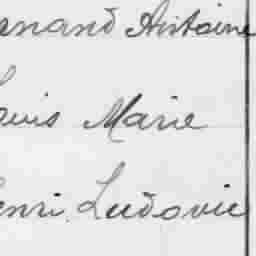 ernand Antoine
ouis Marie
enri Ludovic